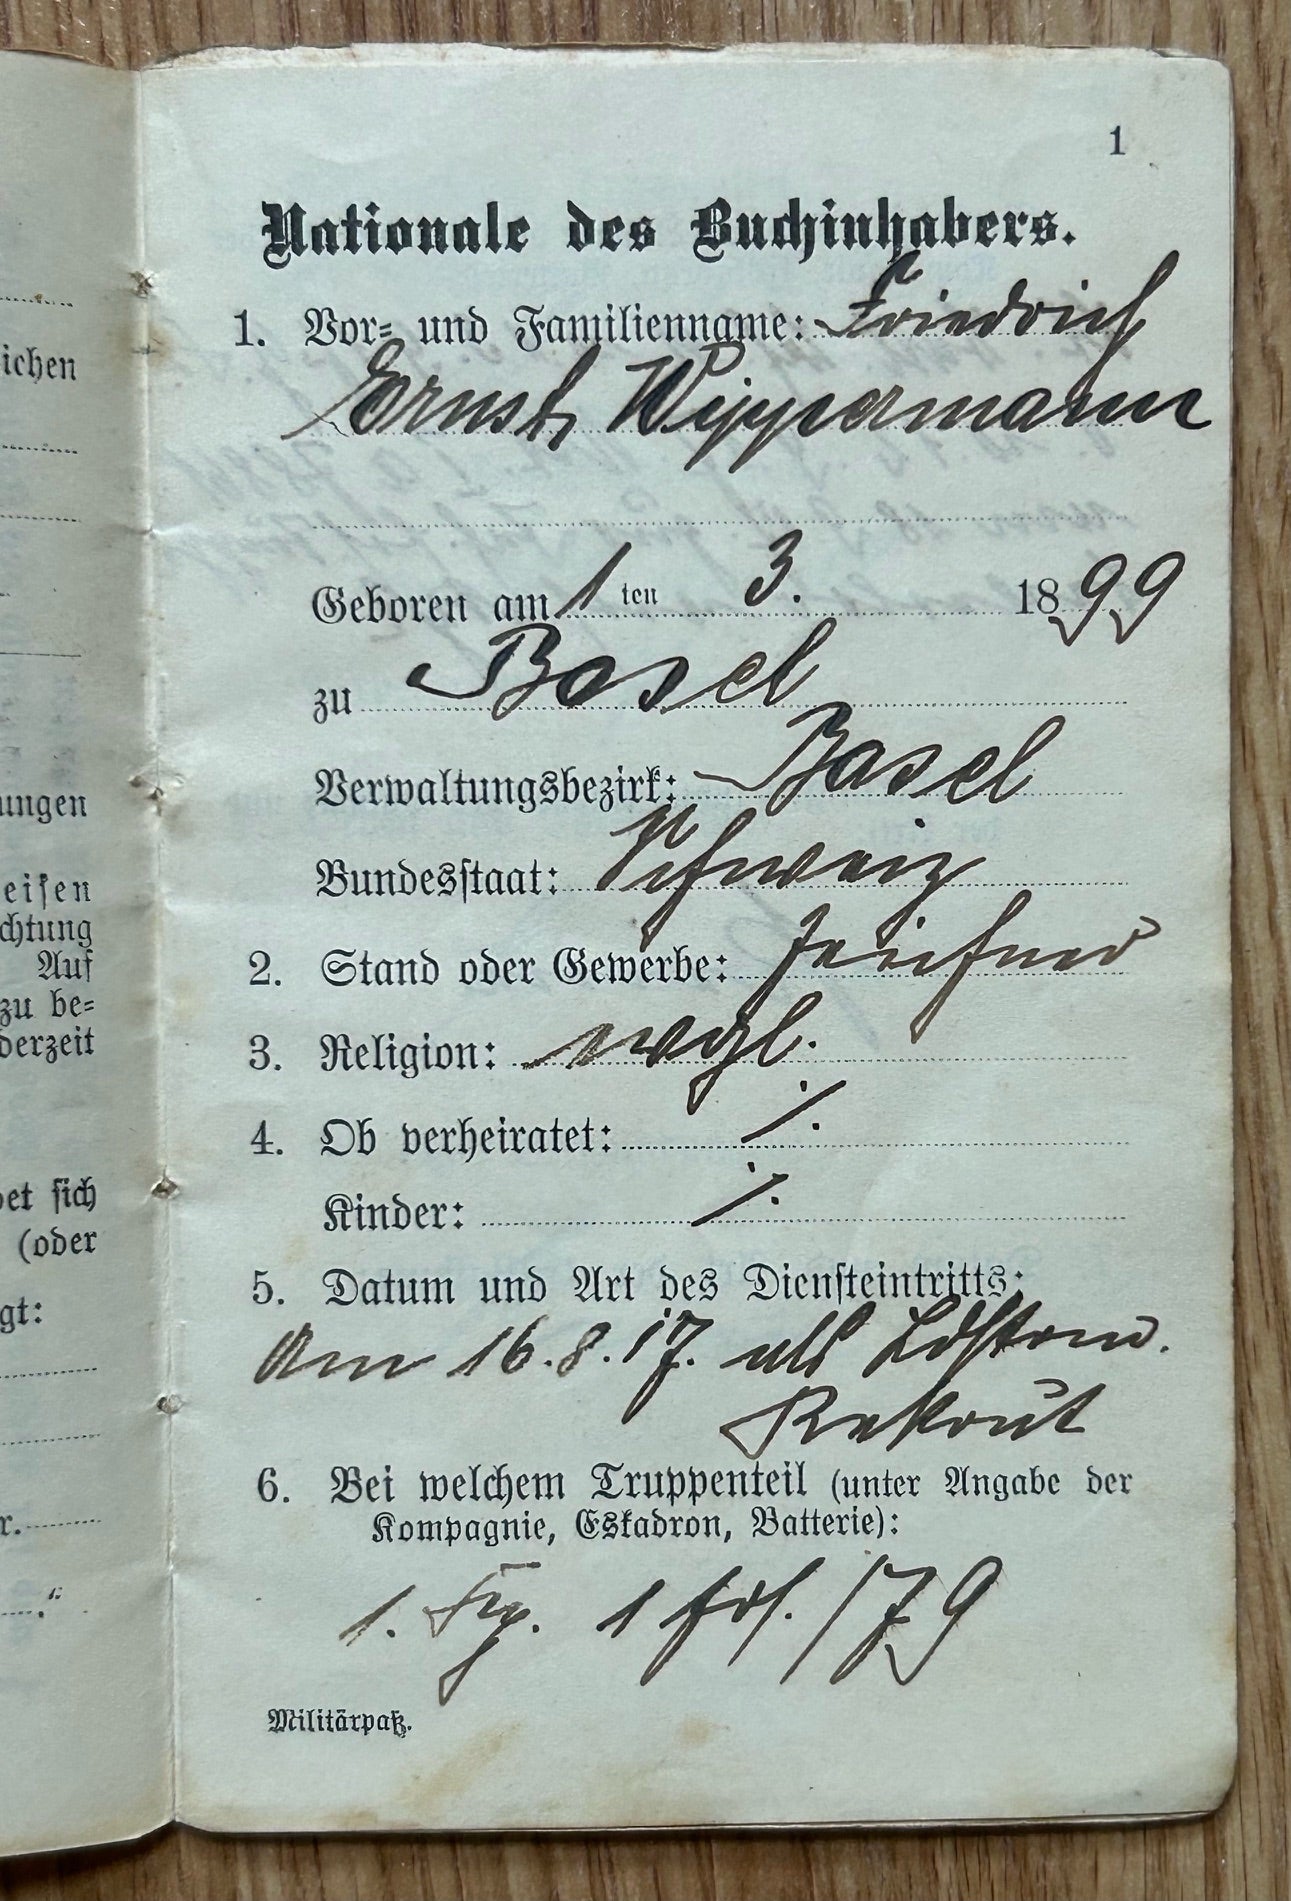 ichen
ungen
eisen
chtung
Auf
zu be=
derzeit
et sich
(oder
gt:
r.
."
1
Nationale des Buchinhabers.
1. Vor= und Familienname: Friedrich
Ernst Wippermann
Geboren am 1 ten 3. 1899
zu Basel
Verwaltungsbezirk: Basel
Bundesstaat: Schweiz
2. Stand oder Gewerbe: Zeichner
3. Religion: evgl.
4. Ob verheiratet: ./.
Kinder: ./.
5. Datum und Art des Diensteintritts:
Am 16.8.17. als Ldstrm.
Rekrut
6. Bei welchem Truppenteil (unter Angabe der
Kompagnie, Eskadron, Batterie):
1. 1 /79
Militärpaß.